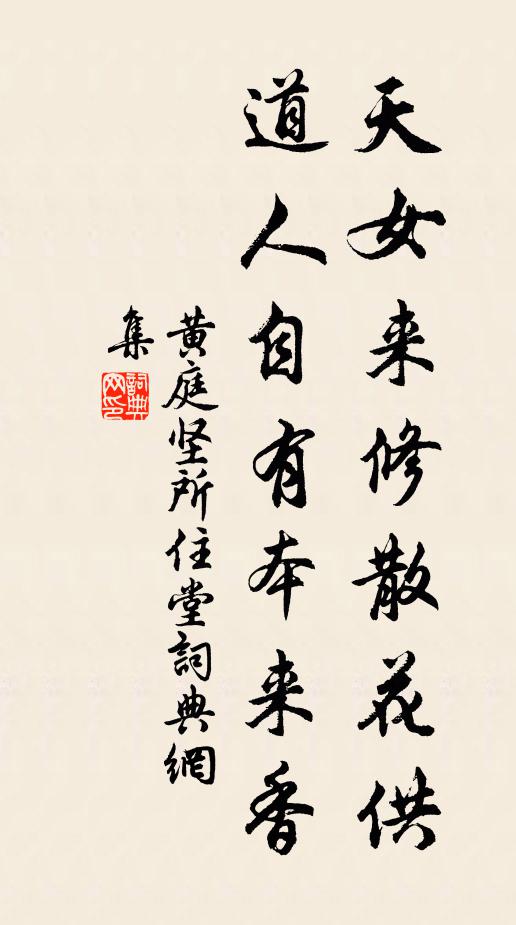 天女来修散花供
道人自有本来香
黄庭坚所住堂詞典網
集
詞典网印